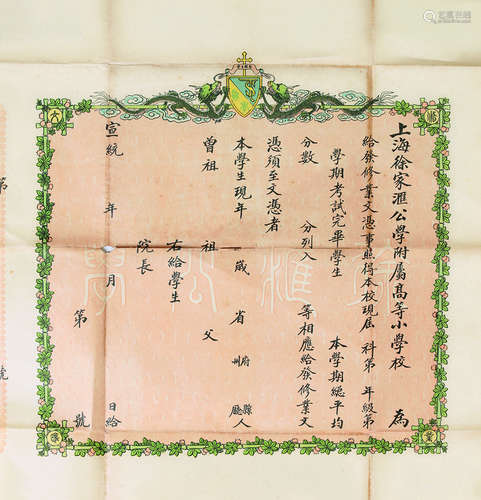 上海徐家滙公學附屬高等小學校 為
給發修業文憑事照得本校現屆 科第 年級第
學期考試完畢學生 本學期總平均
分數 分列入 等相應給發修業文
憑須至文憑者
本學生現年 歲 省 府 州 縣 廳 人
曾祖 祖 父
右給學生
院長
宣統 年 月 日給
第 號
徐滙公學
第
號